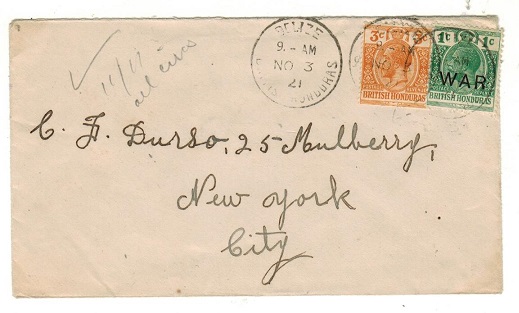 BELIZE
9. - AM
NO 3
21
BRITISH HONDURAS
3c
BRITISH HONDURAS
1c 1c
WAR
BRITISH HONDURAS
11/11
C. F. Durso, 25 Mulberry,
New York
City